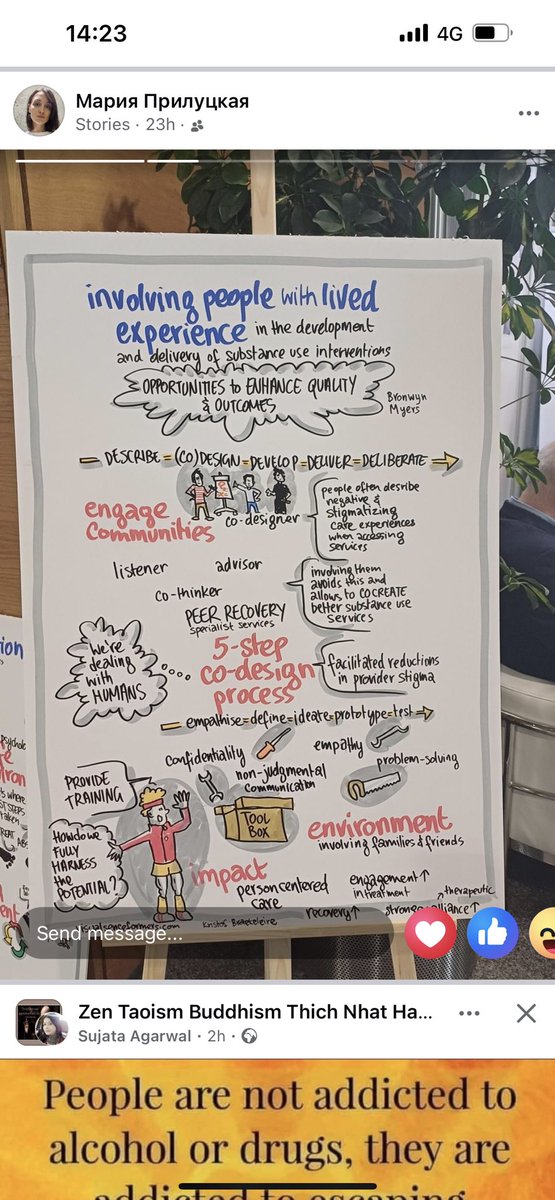 14:23
4G
Мария Прилуцкая
Stories · 23h ·
involving people with lived
experience in the development
and delivery of substance use interventions
OPPORTUNITIES to ENHANCE QUALITY
& OUTCOMES
Bronwyn
Myers
DESCRIBE = (CO)DESIGN = DEVELOP = DELIVER = DELIBERATE
engage
communities
co-designer
people often desribe
negative &
stigmatizing
care experiences
when accessing
services
listener
advisor
co-thinker
PEER RECOVERY
specialist services
involving them
avoids this and
allows to COCREATE
better substance use
services
We're
dealing
with
HUMANS
5-step
co-design
process
facilitated reductions
in provider stigma
empathise=define=ideate=prototype=test
confidentiality
empathy
non-judgmental
communication
problem-solving
PROVIDE
TRAINING
TOOL
BOX
environment
involving families & friends
How do we
FULLY
HARNESS
the
POTENTIAL?
impact
person centered
care
engagement↑
in treatment
recovery↑
therapeutic
alliance↑
Send message...
Zen Taoism Buddhism Thich Nhat Ha...
Sujata Agarwal · 2h ·
People are not addicted to
alcohol or drugs, they are
addicted to escaping